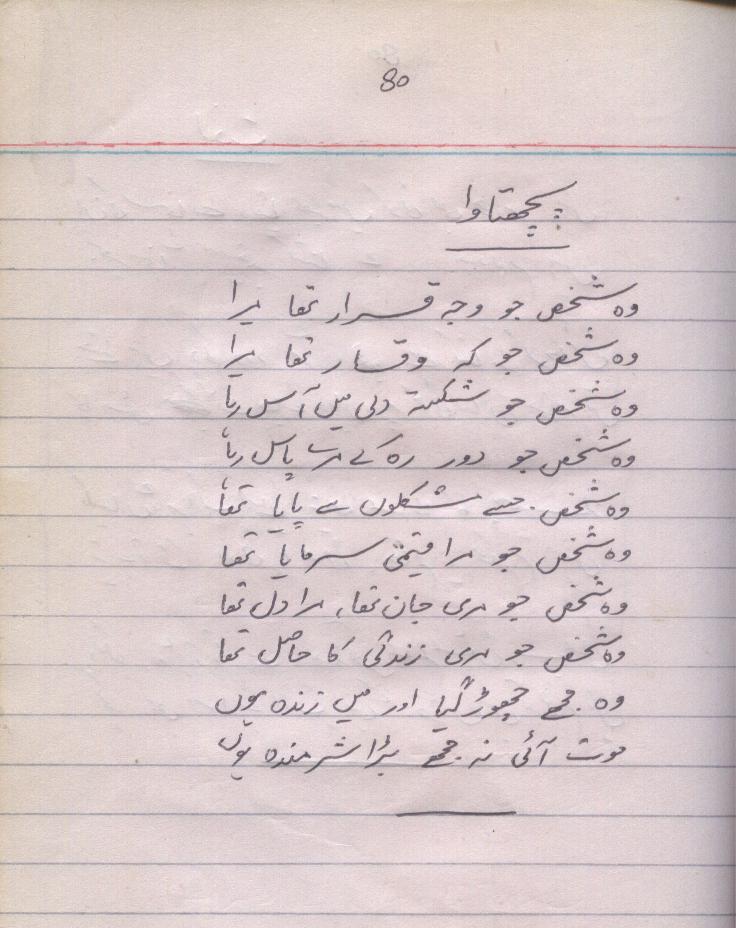 80
پچھتاوا
وہ شخص جو وجہ قرار تھا مرا
وہ شخص جو کہ وقار تھا مرا
وہ شخص جو شکستہ دلی میں آس رہا
وہ شخص جو دور رہ کے مرے پاس رہا
وہ شخص جسے مشکلوں سے پایا تھا
وہ شخص جو مرا قیمتی سرمایا تھا
وہ شخص جو مری جان تھا، مرا دل تھا
وہ شخص جو مری زندگی کا حاصل تھا
وہ مجھے چھوڑ گیا اور میں زندہ ہوں
موت آئی نہ مجھے بڑا شرمندہ ہوں